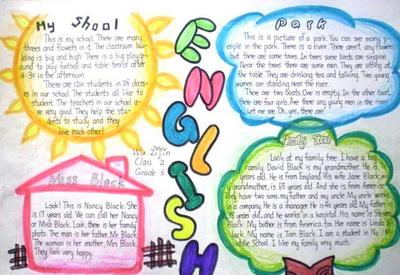 My Shool
This is my school. There are many
threes and flowers in it. The classroom buil-
ding is big and high. There is a big playgro-
und to play football and table tennis after
4:30 in the afternoon.
There are 1200 students in 26 classes
in our school. The students all like to
student. The teachers in our school a-
very good. They help the stu-
dents to study and they
love each other!
ENGLISH
Class 2
Grade 3
Park
This is a picture of a park. You can see many
people in the park. There is a river. There aren't any flowers
but there are some trees. In trees some birds are singing.
Near the trees there are some men. They are sitting at
the table. They are drinking tea and talking. Two young
women are standing near the river.
There are two Boats. One is empty. In the other boat,
there are four girls. Are there any young men in the river?
Let me see. Oh, yes, there are
Miss Black
Look! This is Nancy Black. She
is 17 years old. We can call her Nancy
or Miss Black. Look, there is her family
photo. The man is her father, Mr Black.
The woman is her mother, Mrs Black.
They look very happy
Family Tree
Look at my family tree. I have a big
family. David Black is my grandmother.
years old. He is from England. His wife Jane Black, my
grandmother, is 65 years old. And she is from America.
They have two sons. my father and my uncle. My uncle works
in a company. He is a manager. He is 40 years old. My father is
38 years old, and he works in a hospital. His name is Steven
Black. My bother is from America, too. Her name is Linda
Black. My name is Tom Black. I am a student in No. 14
Middle School. I like my family very much.